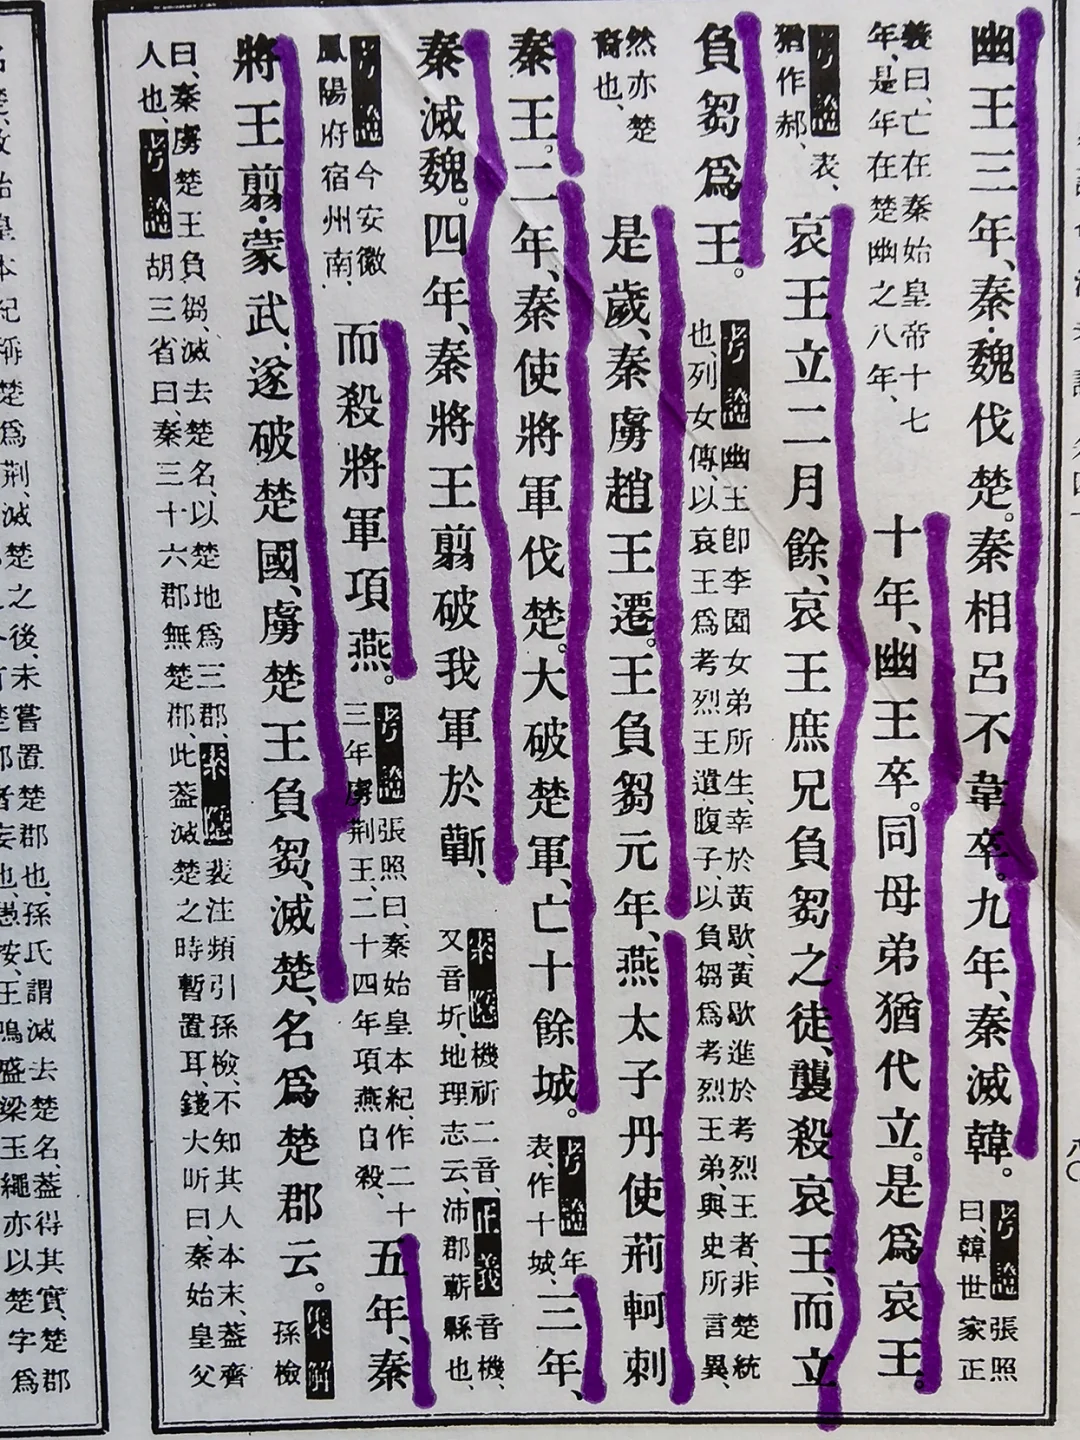 八〇
幽王三年、秦・魏伐楚。秦相呂不韋卒。九年、秦滅韓。
考證張照
曰、韓世家正
義曰、亡在秦始皇帝十七
年、是年在楚幽之八年、
十年、幽王卒。同母弟猶代立。是爲哀王。
考證表、
猶作郝、
哀王立二月餘、哀王庶兄負芻之徒、襲殺哀王、而立
負芻爲王。
考證幽王卽李園女弟所生、幸於黃歇、黃歇進於考烈王者、非楚統
也、列女傳、以哀王爲考烈王遺腹子、以負芻爲考烈王弟、與史所言異、
然亦楚
裔也、
是歲、秦虜趙王遷。王負芻元年、燕太子丹使荊軻刺
秦王。二年、秦使將軍伐楚。大破楚軍、亡十餘城。
考證年
表、作十城、
三年、
秦滅魏。四年、秦將王翦破我軍於蘄、
索隱機祈二音、正義音機、
又音圻、地理志云、沛郡蘄縣也、
考證今安徽
鳳陽府宿州南、
而殺將軍項燕。
考證張照曰、秦始皇本紀、作二十
三年虜荊王、二十四年項燕自殺、
五年、秦
將王翦・蒙武、遂破楚國、虜楚王負芻、滅楚、名爲楚郡云。
集解
孫檢
曰、秦虜楚王負芻、滅去楚名、以楚地爲三郡、索隱裴注頻引孫檢、不知其人本末、蓋齊
人也、考證胡三省曰、秦三十六郡無楚郡、此蓋滅楚之時暫置耳、錢大昕曰、秦始皇父
楚之後、未嘗置楚郡也、孫氏謂滅去楚名、蓋得其實、楚郡
也、愚按、王鳴盛梁玉繩亦以楚字爲